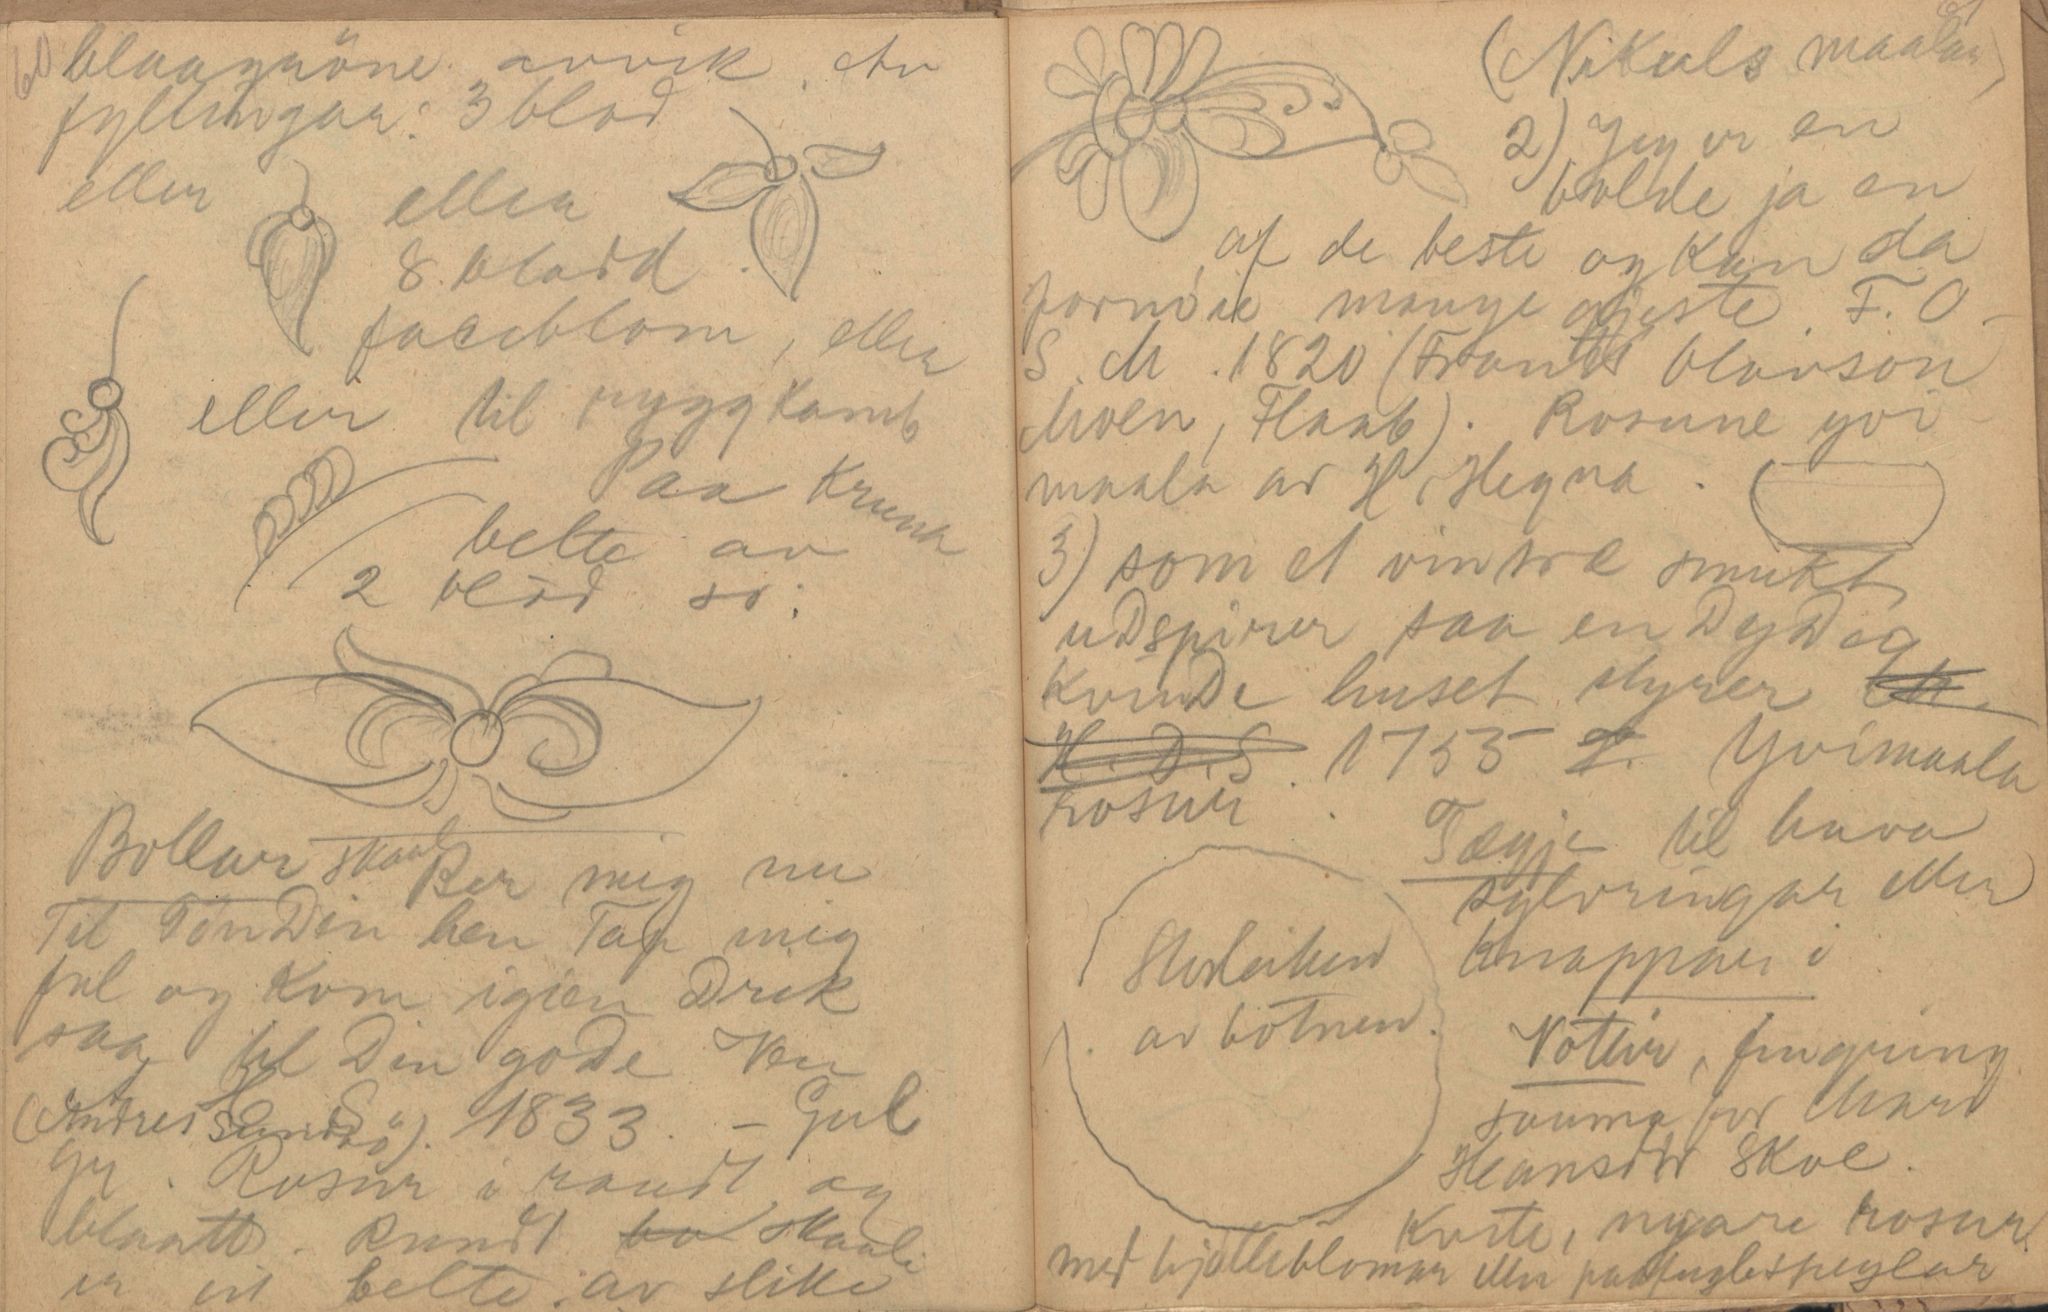 60
blaagröne avvik. Av
fyllingar: 3 blad
eller
eller
8 bladd
faceblom, eller
eller til ryggkamb
Paa Kruna
belte av
2 blad so:
Bollar skaal Ber mig nu
Til TönDen hen Tap mig
ful og Kom igien Drik
saa til Din goDe Ven
(Andres SandSö). 1833. – Gul
gr. Rosur i raudt og
blaatt. Rundt bo skaali
er eit belte av slike
61
(Nikuls maalar)
2) Jeg er en
bolde ja en
af de beste og Kan da
fornöie mange gjeste. F. O
S. M. 1820 (Frants Olavson
Moen, Flaab). Rosune yvi
maala av H. Hegna.
3) som et vintræ smukt
uDspirer saa en DyDig
KvinDe huset styrer
H. D. S. 1755 Yvimaala
rosur.
Tægje til hava
sylvringar eller
Knappar i
Storleiken
av botnen.
Votter, fingring
sauma for Mari
Hansdtr Skoe.
Kvite, nyare rosur
med bjølleblomar eller paafuglespeglar